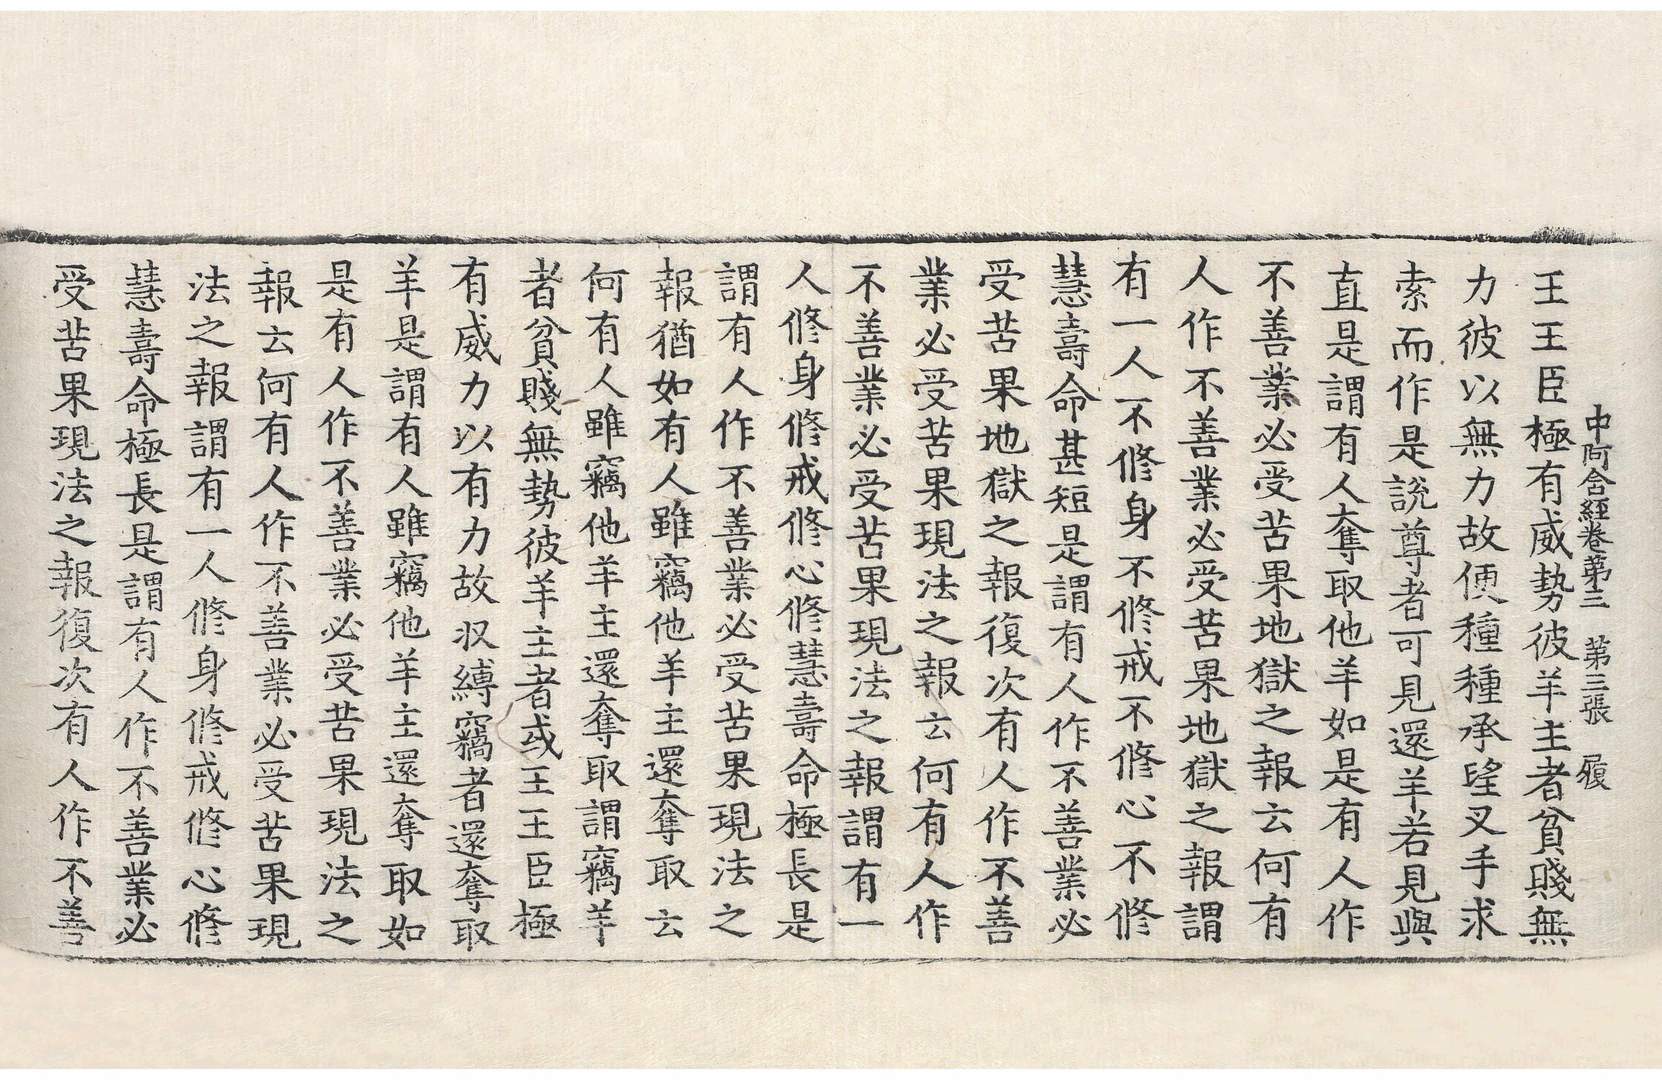 中阿含經卷第三　第三張　履
王王臣極有威勢彼羊主者貧賤無
力彼以無力故便種種承望叉手求
索而作是説尊者可見還羊若見與
直是謂有人奪取他羊如是有人作
不善業必受苦果地獄之報云何有
人作不善業必受苦果地獄之報謂
有一人不修身不修戒不修心不修
慧壽命甚短是謂有人作不善業必
受苦果地獄之報復次有人作不善
業必受苦果現法之報云何有人作
不善業必受苦果現法之報謂有一
人修身修戒修心修慧壽命極長是
謂有人作不善業必受苦果現法之
報猶如有人雖竊他羊主還奪取云
何有人雖竊他羊主還奪取謂竊羊
者貧賤無勢彼羊主者或王王臣極
有威力以有力故收縛竊者還奪取
羊是謂有人雖竊他羊主還奪取如
是有人作不善業必受苦果現法之
報云何有人作不善業必受苦果現
法之報謂有一人修身修戒修心修
慧壽命極長是謂有人作不善業必
受苦果現法之報復次有人作不善